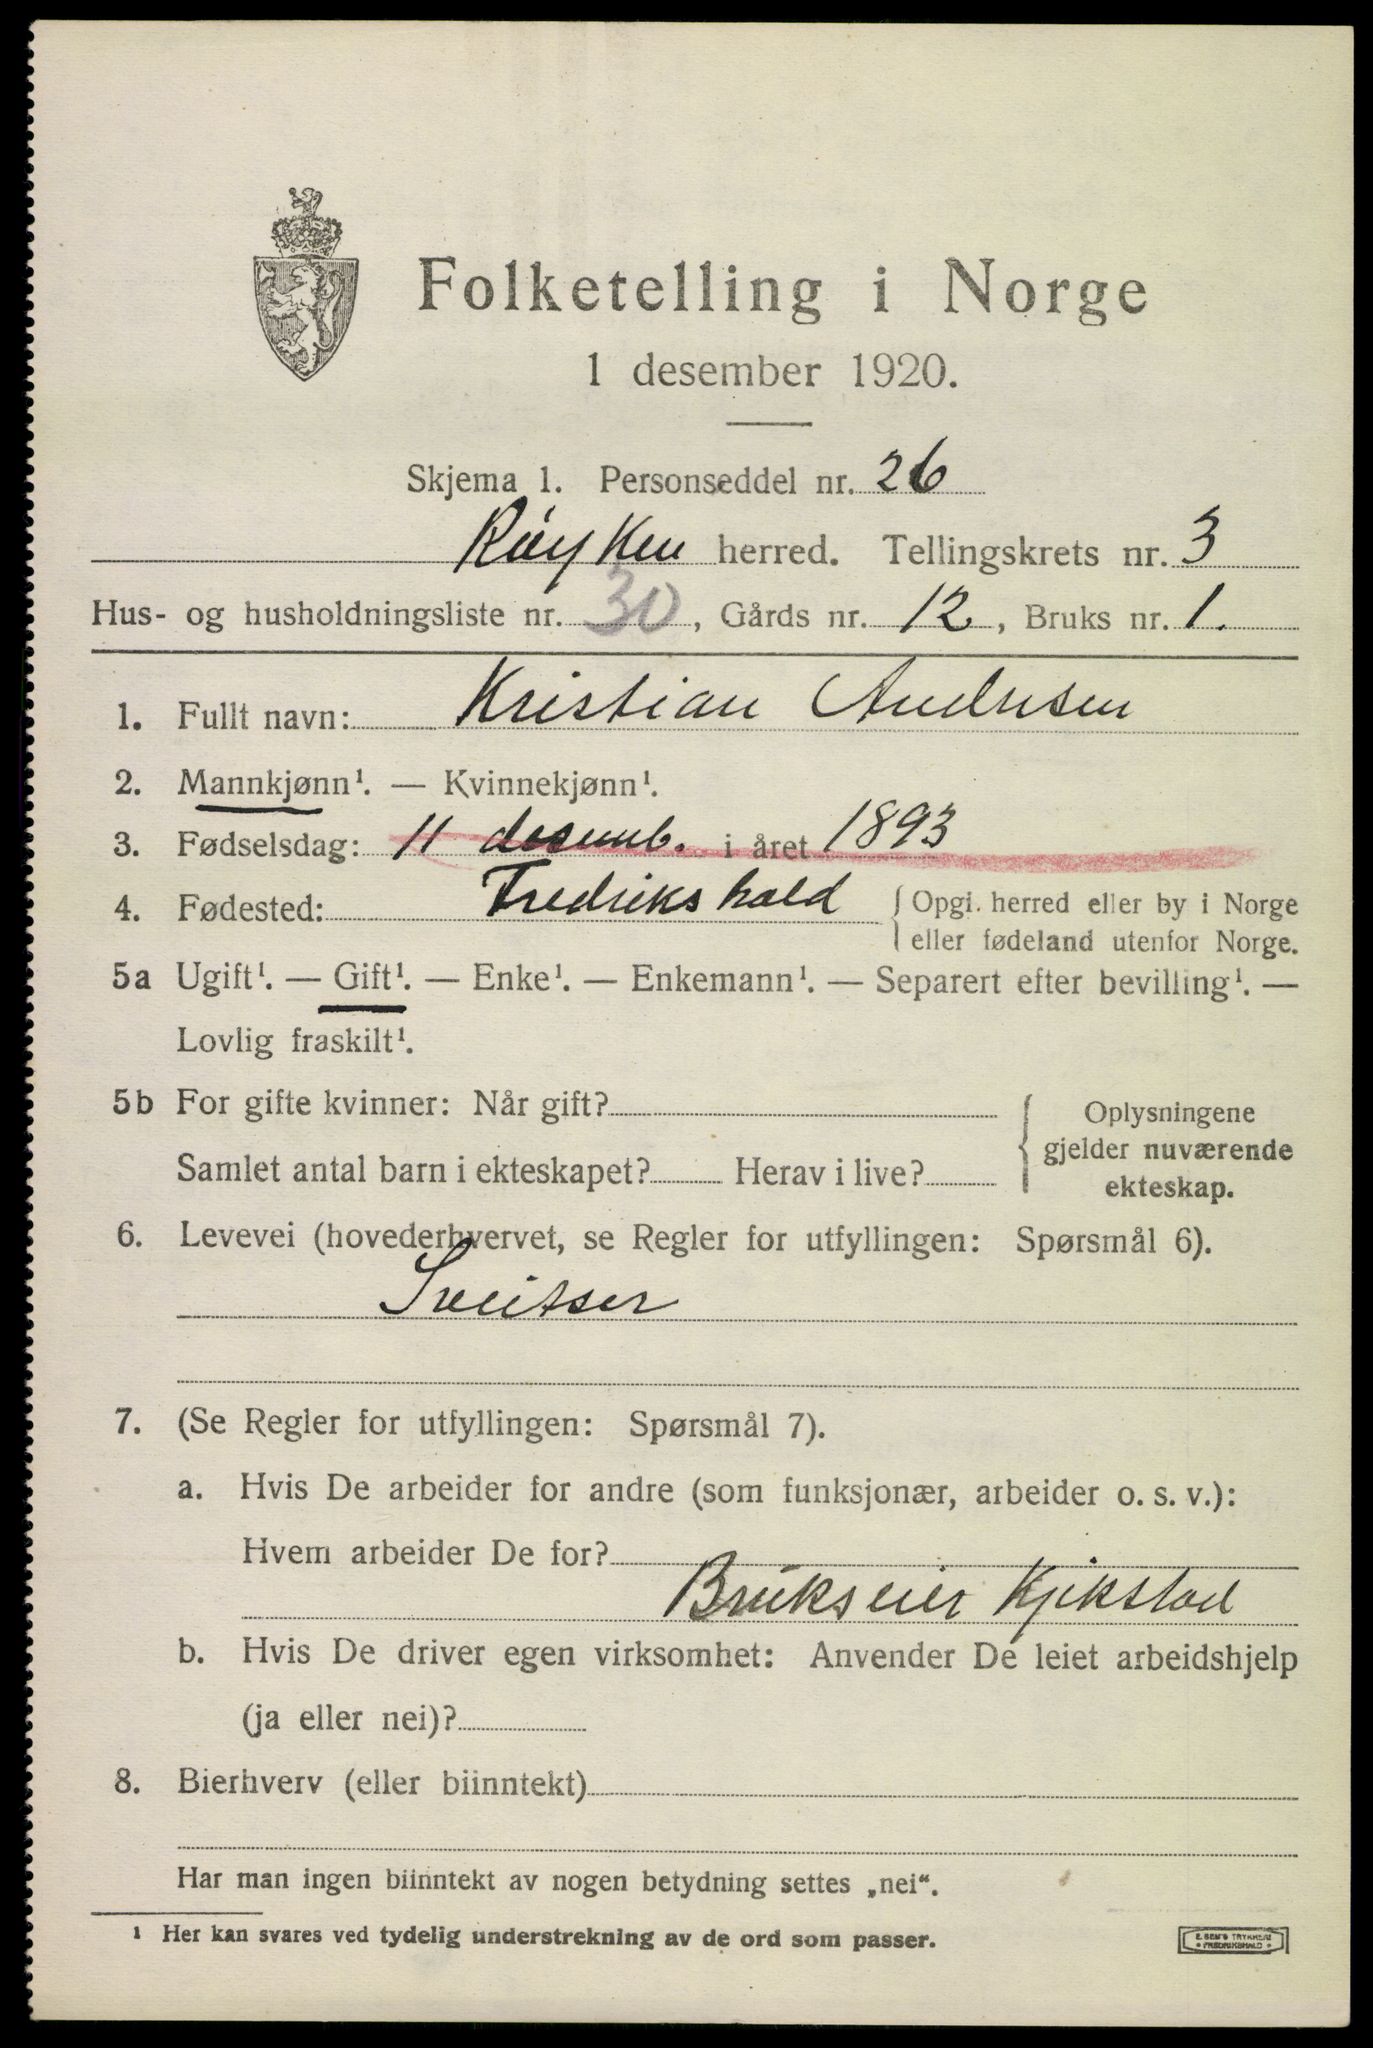 Folketelling i Norge
1 desember 1920.
Skjema 1. Personseddel nr. 26
Røyken herred. Tellingskrets nr. 3
Hus- og husholdningsliste nr. 30, Gårds nr. 12, Bruks nr. 1.
1. Fullt navn: Kristian Andresen
2. Mannkjønn¹. — Kvinnekjønn¹.
3. Fødselsdag: 11 desemb. i året 1893
4. Fødested: Fredrikshald { Opgi. herred eller by i Norge
eller fødeland utenfor Norge.
5a Ugift¹. — Gift¹. — Enke¹. — Enkemann¹. — Separert efter bevilling¹. —
Lovlig fraskilt¹.
5b For gifte kvinner: Når gift? { Oplysningene
gjelder nuværende
Samlet antal barn i ekteskapet? Herav i live?
ekteskap.
6. Levevei (hovederhvervet, se Regler for utfyllingen: Spørsmål 6).
Sveitser
7. (Se Regler for utfyllingen: Spørsmål 7).
a. Hvis De arbeider for andre (som funksjonær, arbeider o. s. v.):
Hvem arbeider De for?
Brukseier Kjekstad
b. Hvis De driver egen virksomhet: Anvender De leiet arbeidshjelp
(ja eller nei)?
8. Bierhverv (eller biinntekt)
Har man ingen biinntekt av nogen betydning settes „nei“.
¹ Her kan svares ved tydelig understrekning av de ord som passer.
E. SEM'S TRYKKERI
• FREDRIKSHALD •